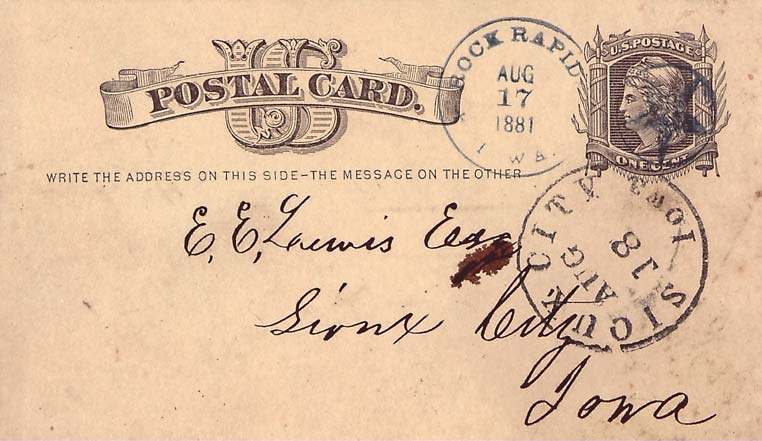 US
POSTAL CARD.
WRITE THE ADDRESS ON THIS SIDE–THE MESSAGE ON THE OTHER
ROCK RAPID
AUG
17
1881
I WA.
U.S. POSTAGE
ONE CENT
E. E. Lewis Esq
Sioux City
Iowa
SIOUX CITY
IOWA
AUG
18